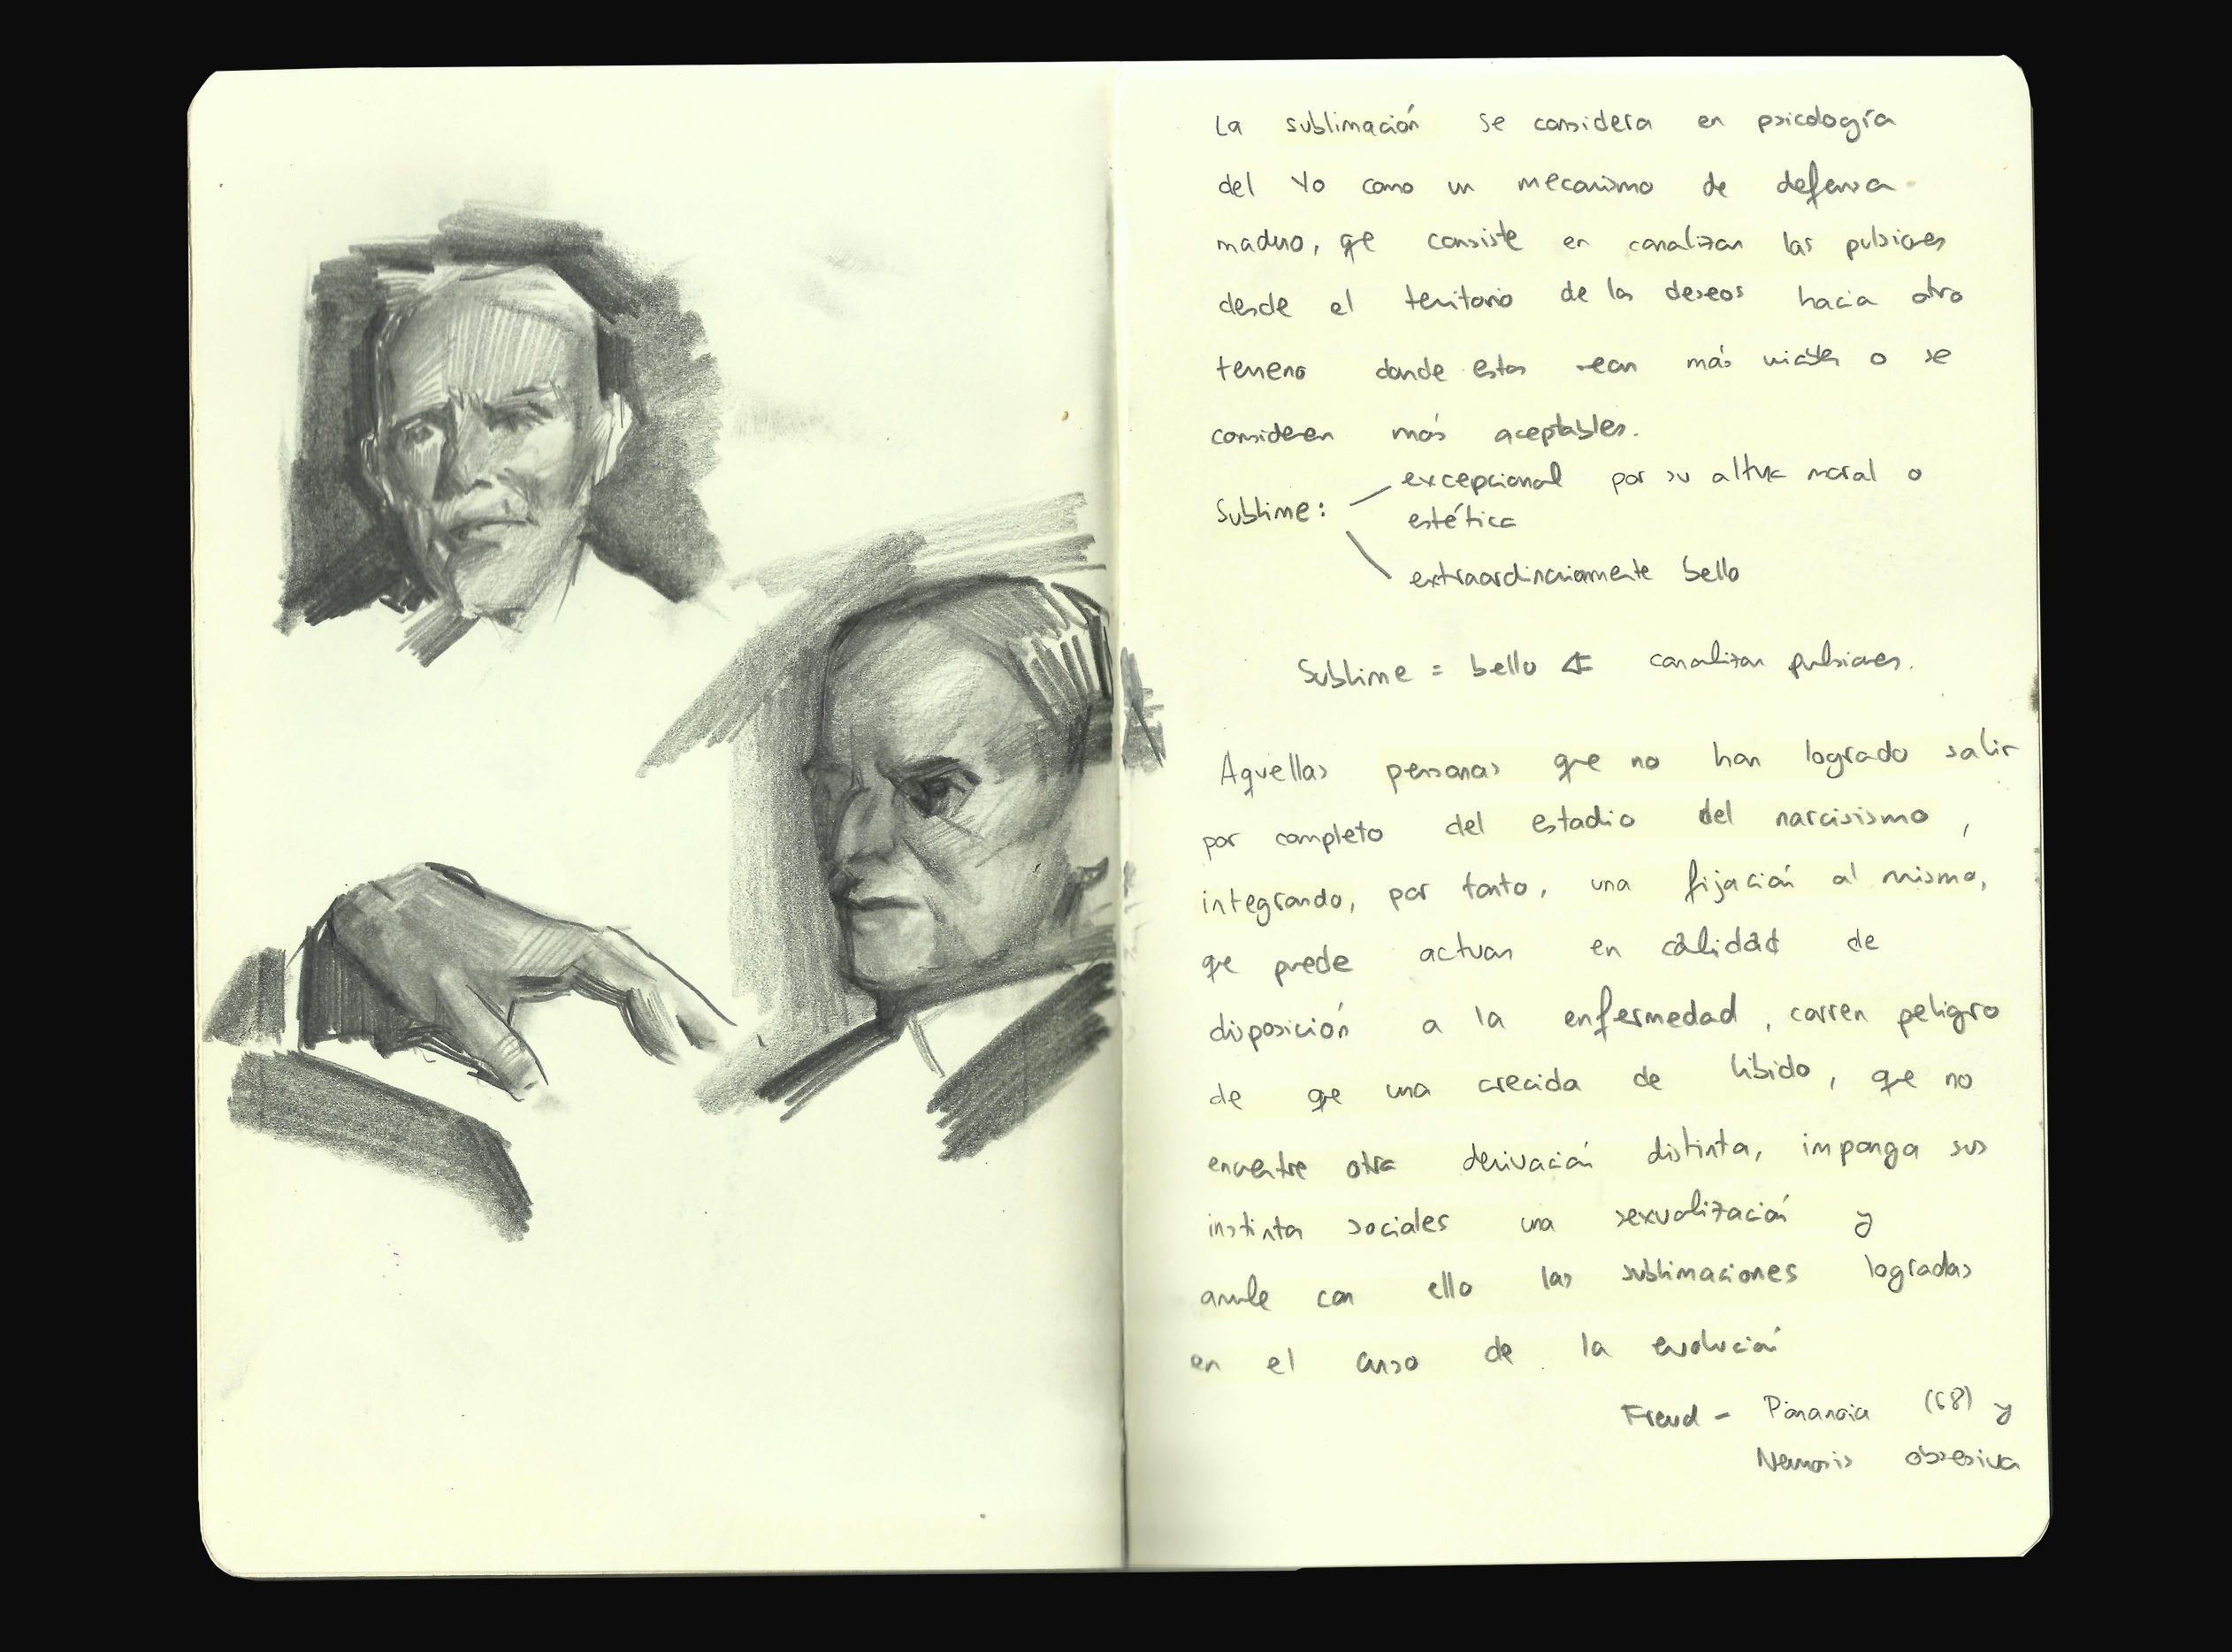 La sublimación se considera en psicología
del Yo como un mecanismo de defensa
maduro, que consiste en canalizar las pulsiones
desde el territorio de los deseos hacia otro
terreno donde estos sean más viables o se
consideren más aceptables.
Sublime: excepcional por su altura moral o
estética
extraordinariamente bello
Sublime = bello ⇐ canalizar pulsiones.
Aquellas personas que no han logrado salir
por completo del estadio del narcisismo,
integrando, por tanto, una fijación al mismo,
que puede actuar en calidad de
disposición a la enfermedad, corren peligro
de que una crecida de libido, que no
encuentre otra derivación distinta, imponga sus
instintos sociales una sexualización y
anule con ello las sublimaciones logradas
en el curso de la evolución
Freud - Paranoia (68) y
Neurosis obsesiva